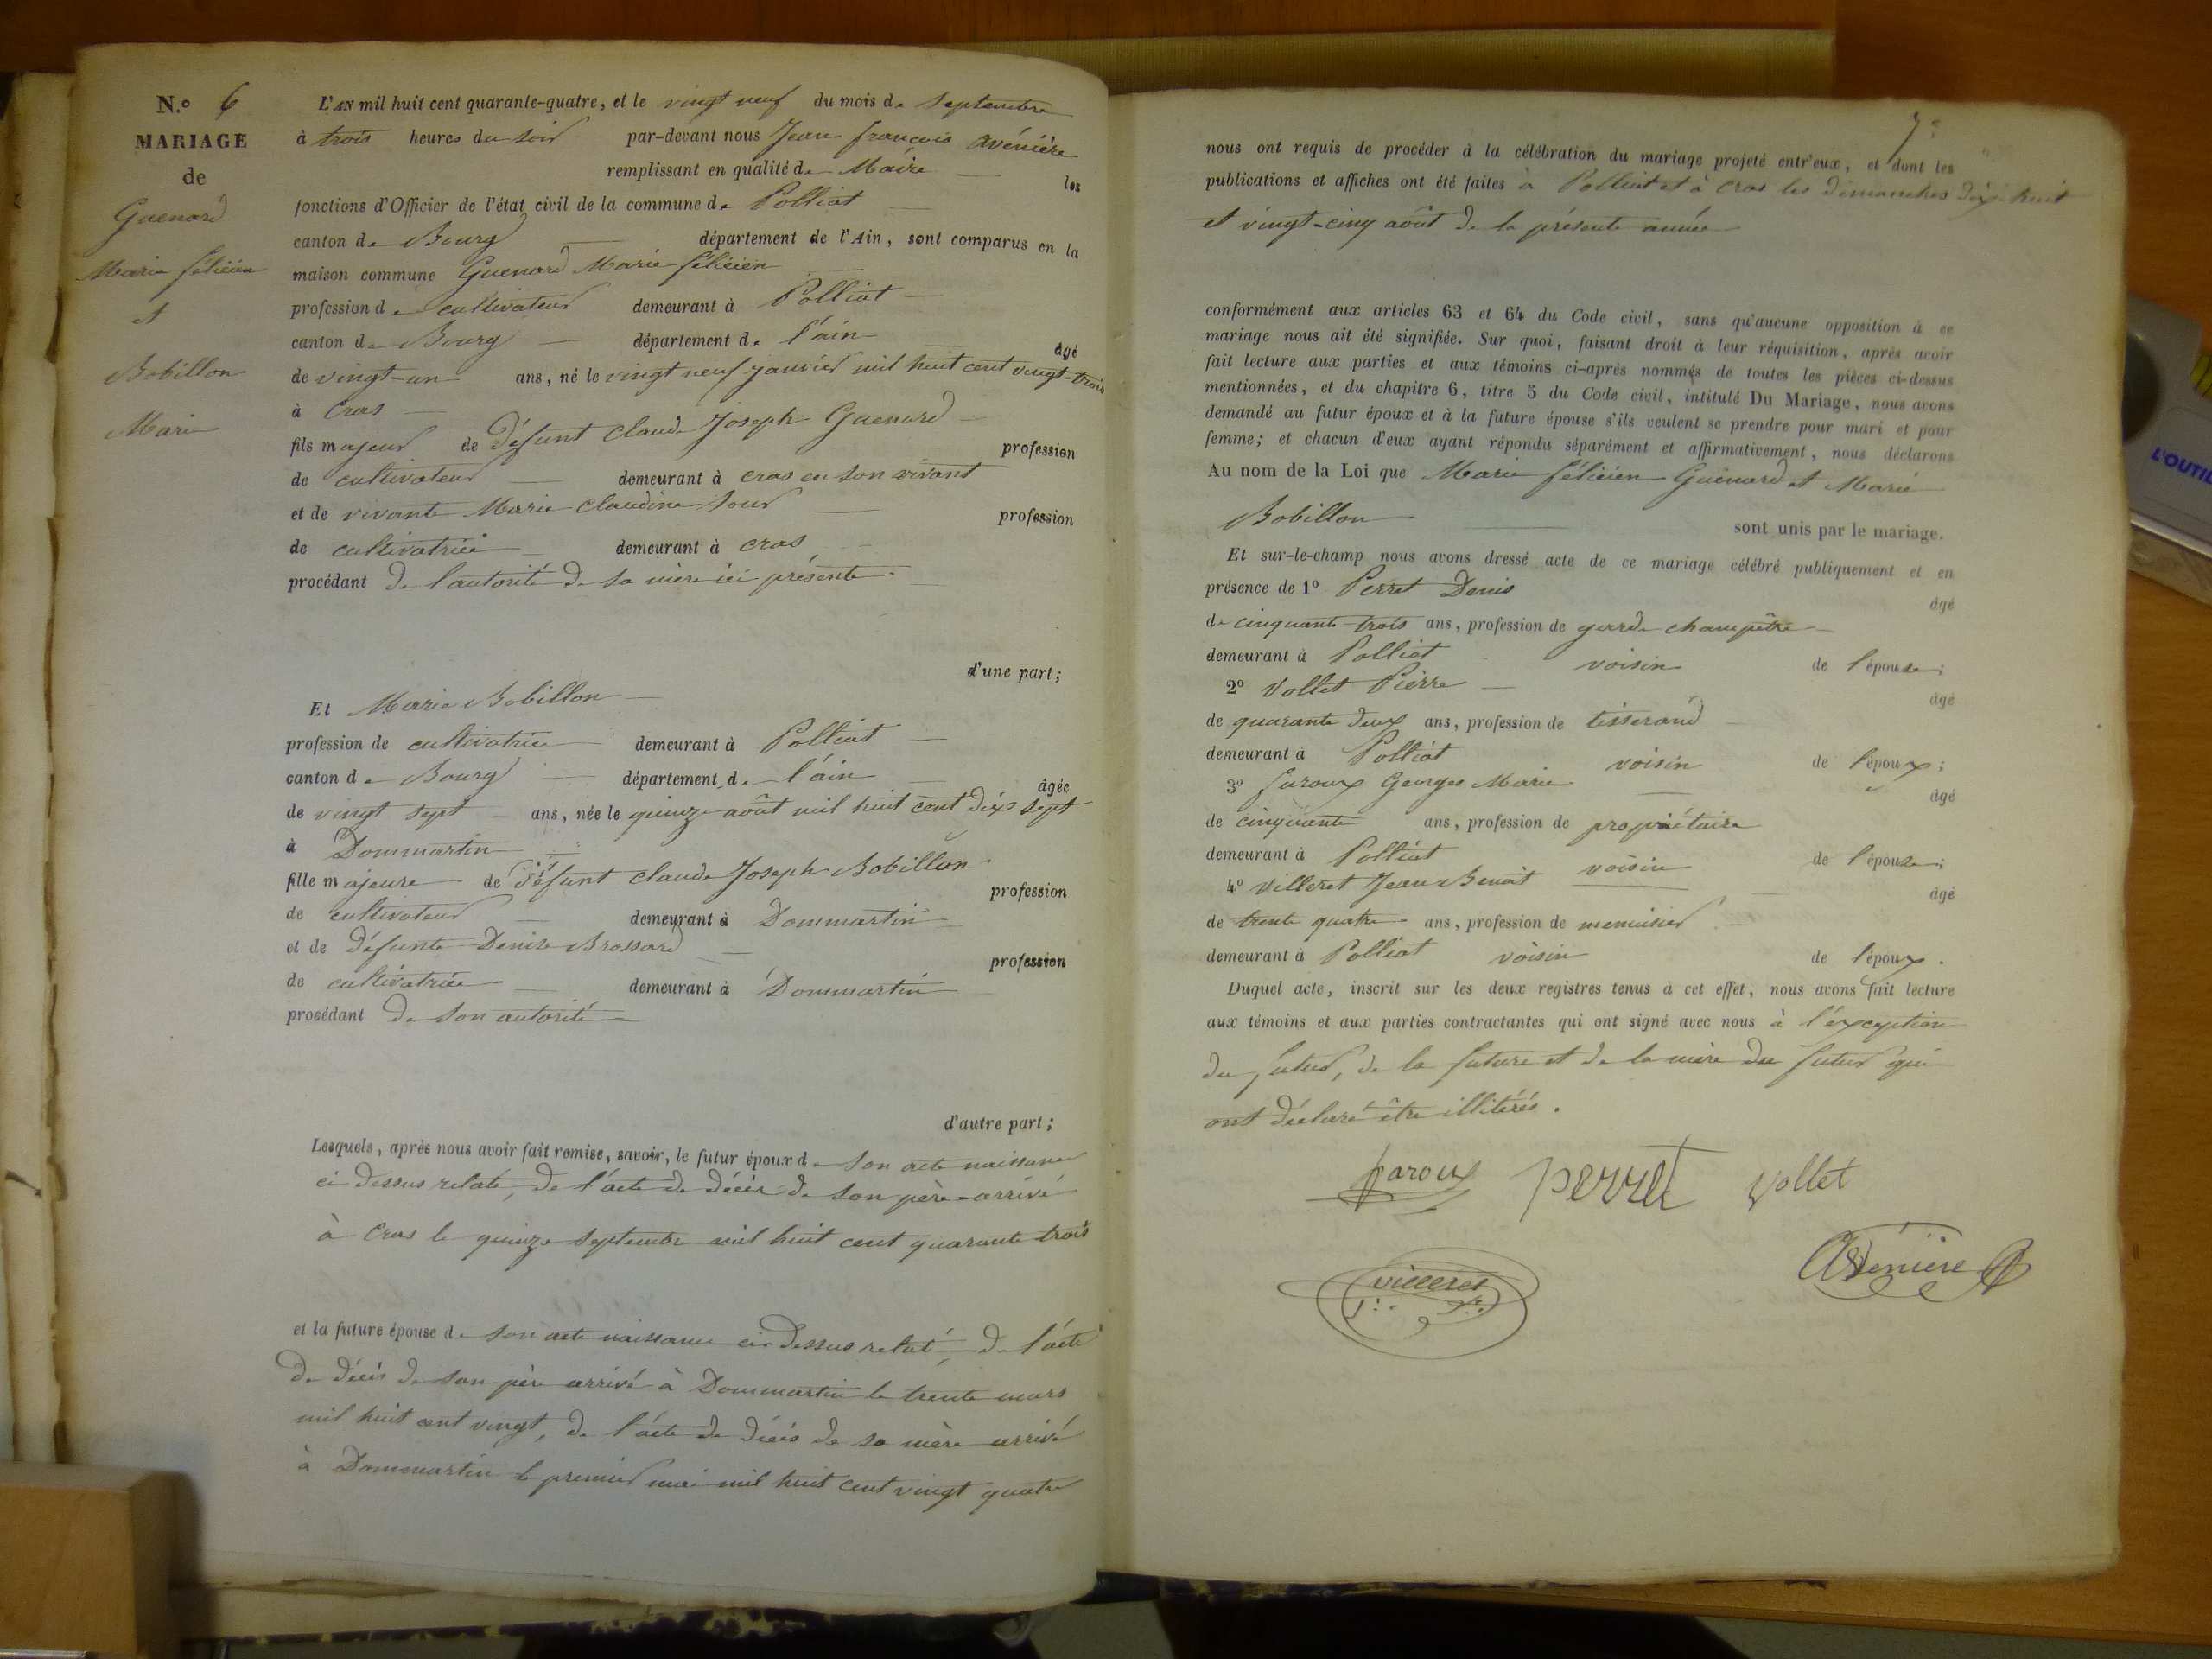 N.º 6
MARIAGE
de
Guenard
Marie félicien
et
Bobillon
Marie
L'AN mil huit cent quarante-quatre, et le vingt neuf du mois de Septembre
à trois heures du soir par-devant nous Jean françois avénière
remplissant en qualité de Maire les
fonctions d'Officier de l'état civil de la commune de Polliat
canton de Bourg département de l'Ain, sont comparus en la
maison commune Guenard Marie félicien
profession de cultivateur demeurant à Polliat
canton de Bourg département de l'ain âgé
de vingt-un ans, né le vingt neuf janvier mil huit cent vingt-trois
à Cras
fils majeur de défunt Claude Joseph Guenard profession
de cultivateur demeurant à cras en son vivant
et de vivante Marie claudine Sour profession
de cultivatrice demeurant à cras
procédant de l'autorité de sa mère ici présente
d'une part;
Et Marie Bobillon
profession de cultivatrice demeurant à Polliat
canton de Bourg département de l'ain âgée
de vingt sept ans, née le quinze août mil huit cent dix sept
à Dommartin
fille majeure de défunt Claude Joseph Bobillon profession
de cultivateur demeurant à Dommartin
et de défunte Denise Brossard profession
de cultivatrice demeurant à Dommartin
procédant de son autorité
d'autre part;
Lesquels, après nous avoir fait remise, savoir, le futur époux de son acte naissance
ci dessus relaté, de l'acte de décès de son père arrivé
à Cras le quinze Septembre mil huit cent quarante trois
et la future épouse de son acte naissance ci-dessus relaté, de l'acte
de décès de son père arrivé à Dommartin le trente mars
mil huit cent vingt, de l'acte de décès de sa mère arrivé
à Dommartin le premier mai mil huit cent vingt quatre
7e
nous ont requis de procéder à la célébration du mariage projeté entr'eux, et dont les
publications et affiches ont été faites à Polliat et à Cras les dimanches dix-huit
et vingt-cinq août de la présente année
conformément aux articles 63 et 64 du Code civil, sans qu'aucune opposition à ce
mariage nous ait été signifiée. Sur quoi, faisant droit à leur réquisition, après avoir
fait lecture aux parties et aux témoins ci-après nommés de toutes les pièces ci-dessus
mentionnées, et du chapitre 6, titre 5 du Code civil, intitulé Du Mariage, nous avons
demandé au futur époux et à la future épouse s'ils veulent se prendre pour mari et pour
femme; et chacun d'eux ayant répondu séparément et affirmativement, nous déclarons
Au nom de la Loi que Marie félicien Guénard et Marie
Bobillon sont unis par le mariage.
Et sur-le-champ nous avons dressé acte de ce mariage célébré publiquement et en
présence de 1º Perret Denis âgé
de cinquante trois ans, profession de garde champêtre
demeurant à Polliat voisin de l'épouse;
2º Vollet Pierre âgé
de quarante deux ans, profession de tisserand
demeurant à Polliat voisin de l'époux;
3º faroux Georges Marie âgé
de cinquante ans, profession de propriétaire
demeurant à Polliat voisin de l'épouse;
4º Villeret Jean Benoit âgé
de trente quatre ans, profession de menuisier
demeurant à Polliat voisin de l'époux.
Duquel acte, inscrit sur les deux registres tenus à cet effet, nous avons fait lecture
aux témoins et aux parties contractantes qui ont signé avec nous à l'exception
du futur, de la future et de la mère du futur qui
ont déclaré être illitérés.
faroux perret vollet
villeret Avenière
L'OUTIL